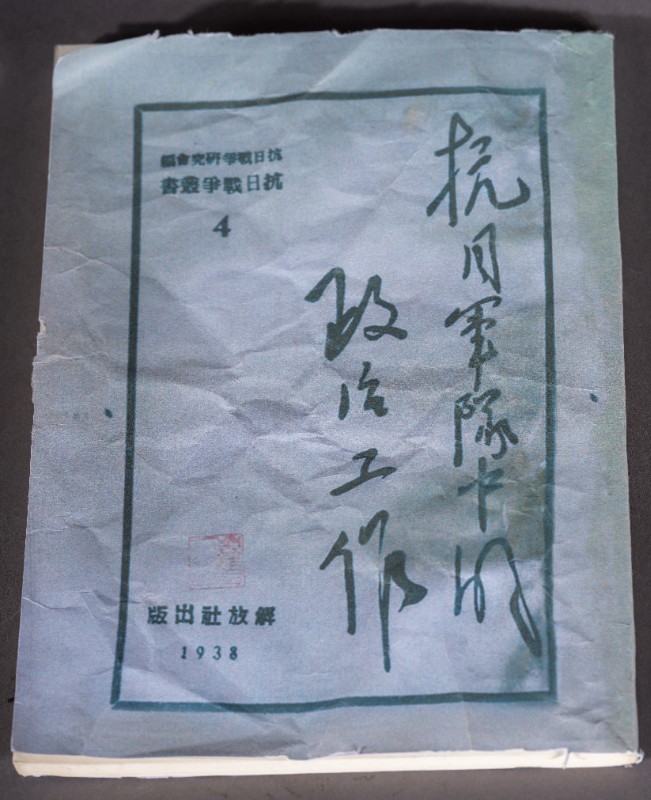 抗日軍隊中的
政治工作
抗日戰爭研究會編
抗日戰爭叢書
4
解放社出版
1938